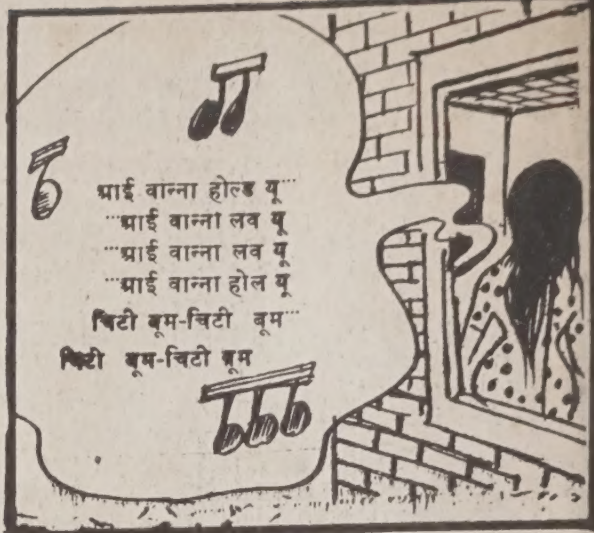 आई वान्ना होल्ड यू...
...आई वान्नो लव यू
...आई वान्ना लव यू
...आई वान्ना होल यू
चिटी बूम-चिटी बूम...
चिटी बूम-चिटी बूम